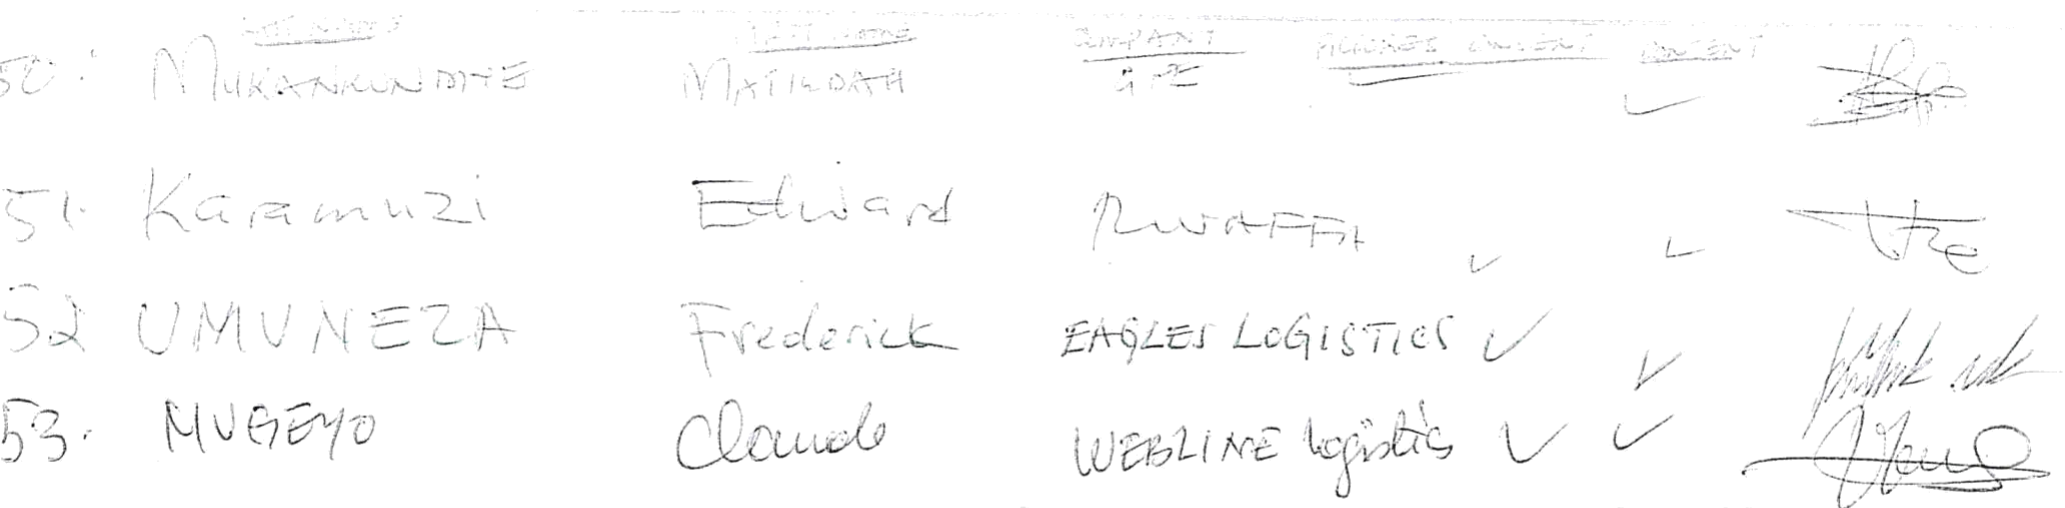 LAST NAMES FIRST NAME COMPANY PICTURES CONSENT CONSENT
50. MUKANKUNDIYE MATILDAH ✓ ✓
51. Karamuzi Edward RWAFFA ✓ ✓
52 UMUNEZA Frederick EAGLES LOGISTICS ✓ ✓
53. MUGEYO Claude WEBLINE logistics ✓ ✓